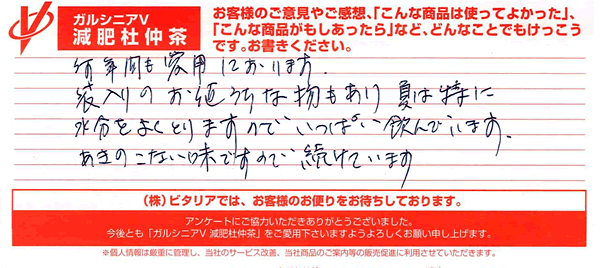 ガルシニアV
減肥杜仲茶
お客様のご意見やご感想、「こんな商品は使ってよかった」、
「こんな商品がもしあったら」など、どんなことでもけっこう
です。お書きください。
何年間も愛用しております.
袋入りのお徳うちな物もあり 夏は特に
水分をよくとりますのでいっぱい飲んでいます.
あきのこない味ですので続けています
(株)ビタリアでは、お客様のお便りをお待ちしております。
アンケートにご協力いただきありがとうございました。
今後とも「ガルシニアV 減肥杜仲茶」をご愛用下さいますようよろしくお願い申し上げます。
※個人情報は厳重に管理し、当社のサービス改善、当社商品のご案内等の販売促進に利用させていただきます。